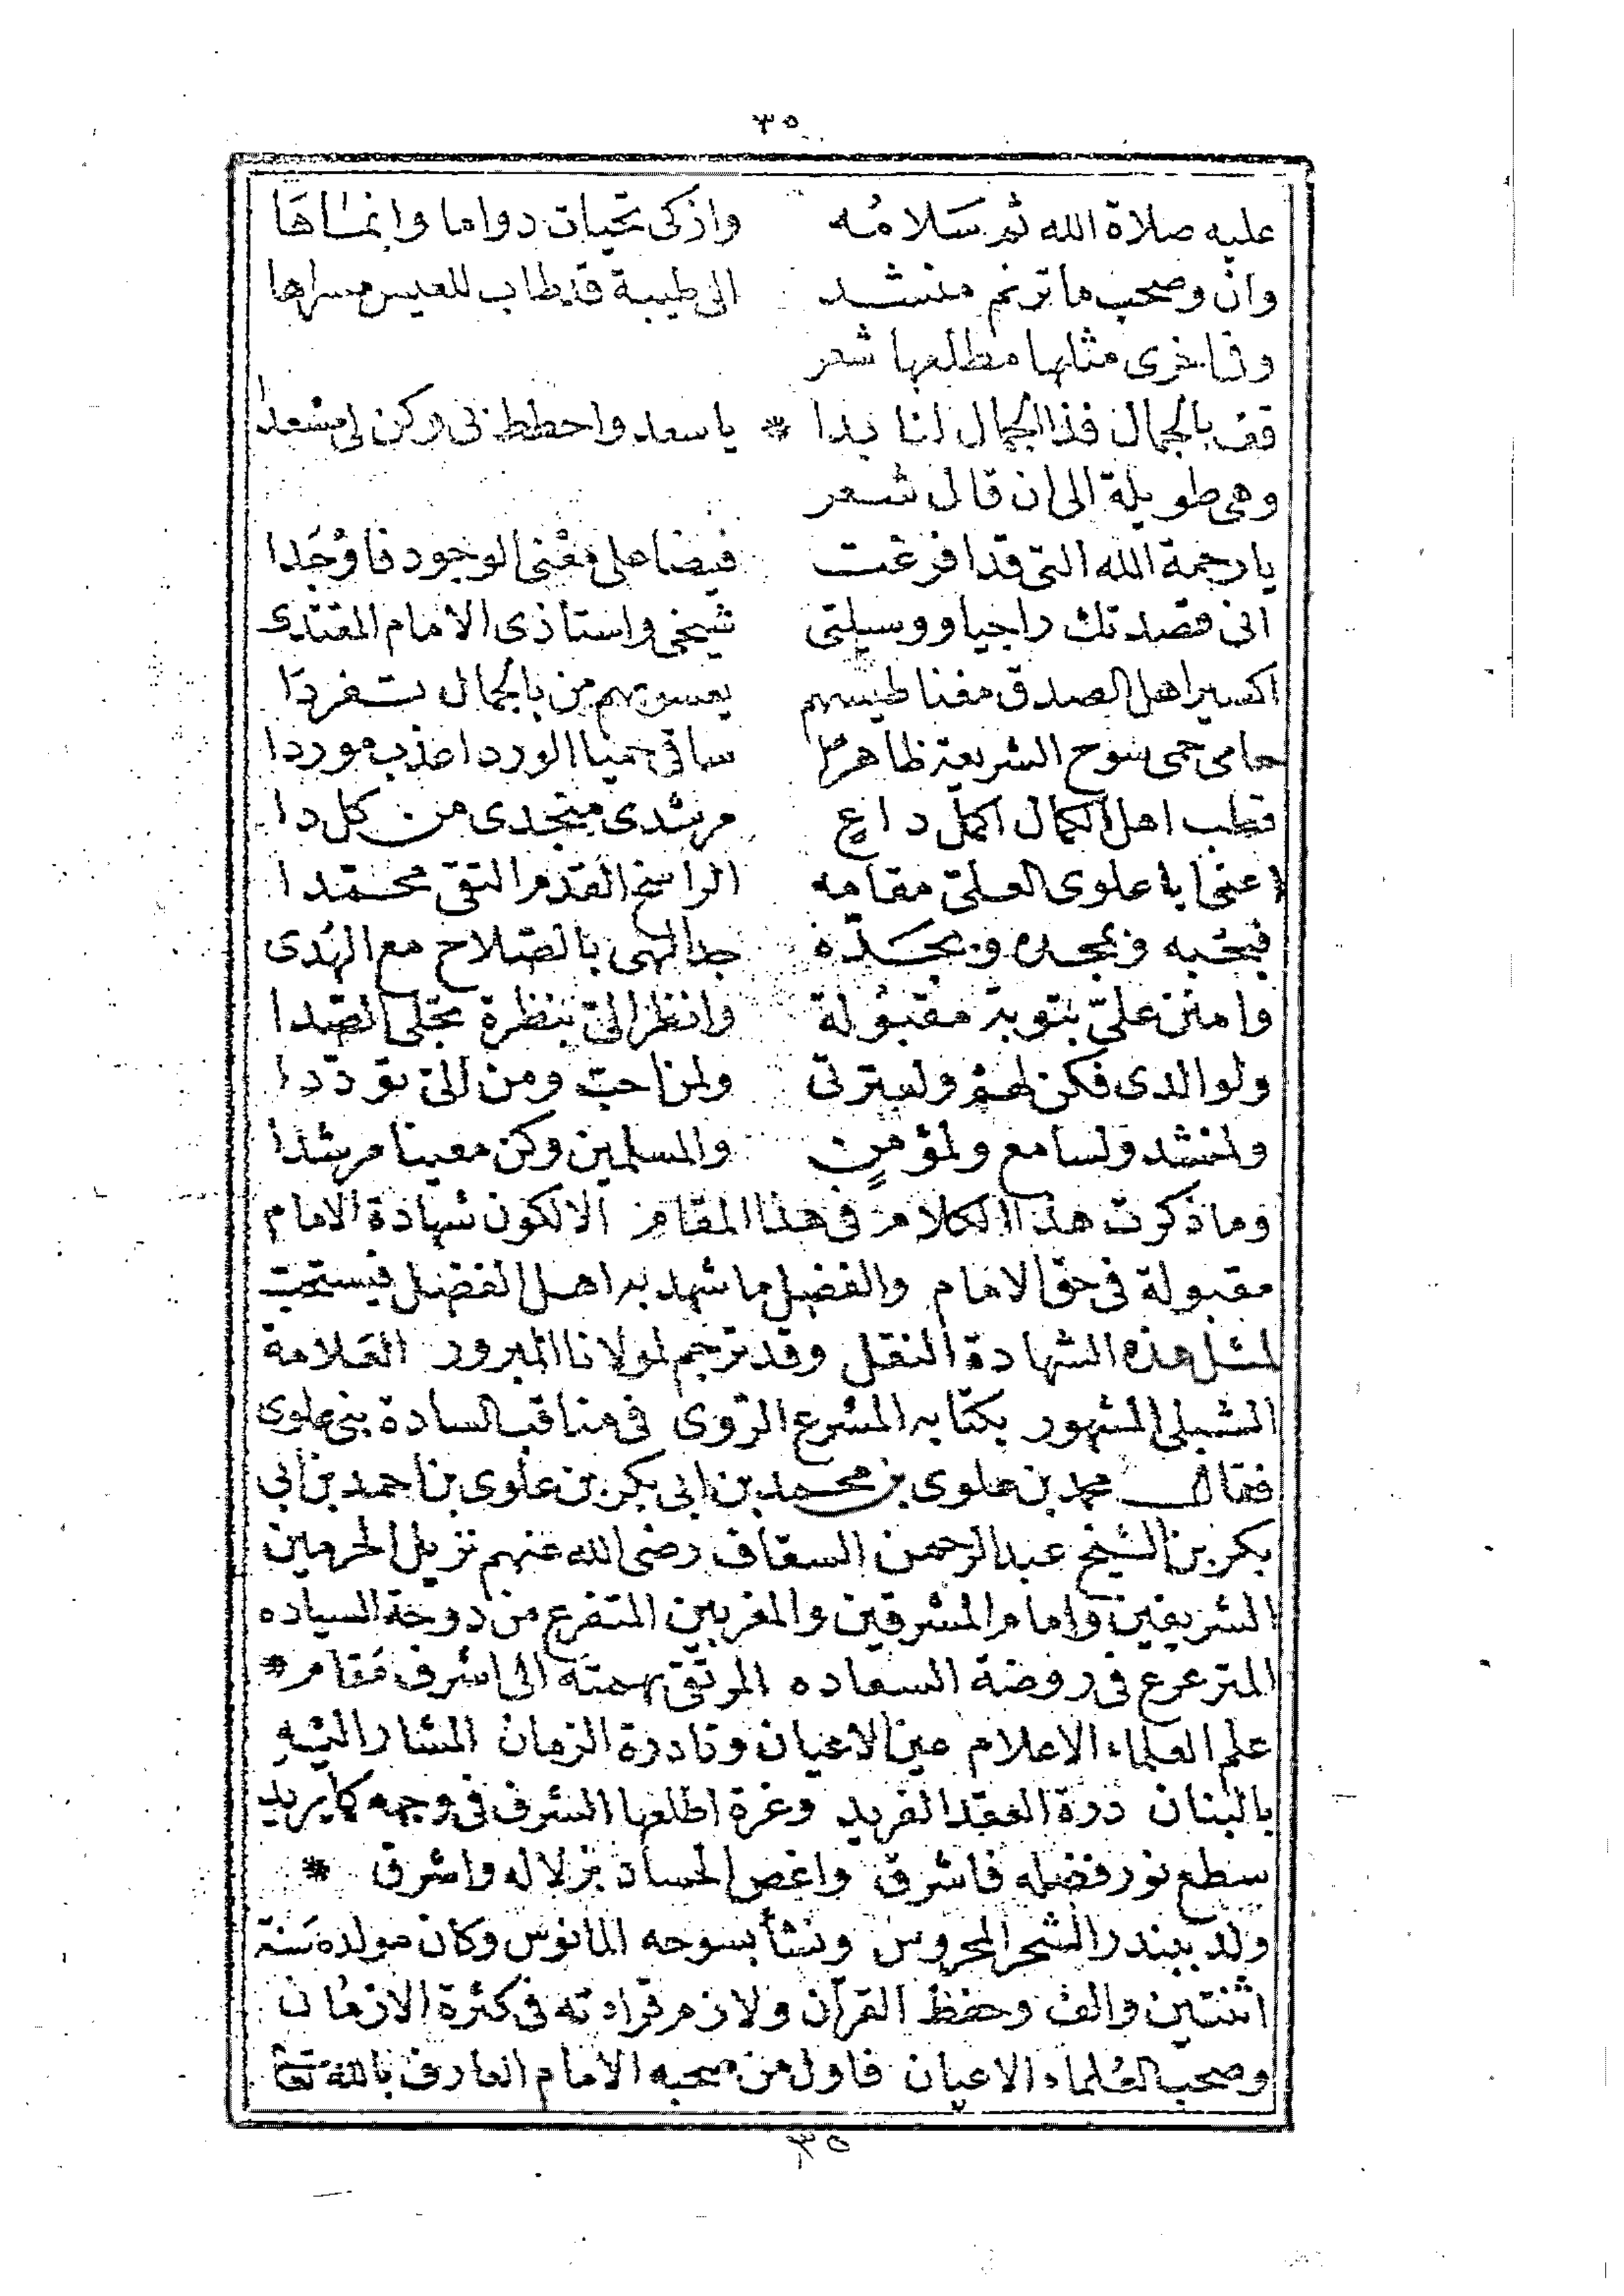 ٣٥
عليه صلاة الله ثم سَلامُه واذكى تحيات دواما وانمـاهَا
وان وصحب ما ترنم منشـد الى طيبة قد طاب للعيس مسراها
وفا خرى مثلها مطلعها شعر
قف بالجمال فذا الجمال لنا بدا * يا سعد واحطط لى وكن لى مسعدا
وهى طويلة الى ان قال شعر
يا رحمة الله التى قد افرغت فيضا على مغنى الوجود فاوُجَدا
انى قصدتك راجيا ووسيلتى شيخى واستاذى الامام المقتدى
اكسير اهل الصدق مغناطيسهم يعسوبهم من بالجمال تفردَا
حامى حمى سوح الشريعة ظاهرًا ساقى حميا الورد اعذب موردا
قطب اهل الكمال اكمل داع مرشدى منجدى من كل دا
اعنى با علوى العلىّ مقامه الراسخ القدم التقى محمّدا
فبحُبه وبمجده وبجَدّه جد الهى بالصّلاح مع الهُدى
وامنن علىّ بتوبة مقبُولة وانظر الىّ بنظرة تجلى الصّدا
ولوالدى فكن لهم ولعترتى ولمن احبّ ومن الىّ توددا
ولمنشد ولسامع ولمؤمنٍ والمسلمين وكن معينا مرشدا
وما ذكرت هذا الكلام فى هذا المقام الا لكون شهادة الامام
مقبولة فى حق الامام والفضل ما شهد به اهل الفضل فيستحبّ
لمثل هذه الشهادة النقل وقد ترجم لمولانا المبرور العَلامة
الشبلى المشهور بكتابه المشرع الرّوى فى مناقب السادة بنى علوى
فقال محمد بن علوى بن محمد بن ابى بكر بن علوى بن احمد بن ابى
بكر بن الشيخ عبد الرحمن السقاف رضى الله عنهم نزيل الحرمين
الشريفين وامام المشرقين والمغربين المتفرع من دوحة السياده
المترعرع فى روضة السعاده المرتقى بهمته الى اشرف مَقام *
علم العلماء الاعلام عين الاعيان ونادرة الزمان المشار اليْهِ
بالبنان درة العقد الفريد وغرة اطلعها الشرف فى وجهه كما يريد
سطع نور فضله فاشرق واغص الحساد بزلاله واشرق *
ولد ببندر الشحر المحروس ونشأ بسوحه المانوس وكان مولده سَنة
اثنتين والف وحفظ القرآن ولازم قراءته فى كثرة الازمان
وصحب العُلماء الاعيان فاول من صحبه الامام العارف بالله تعا
٣٥